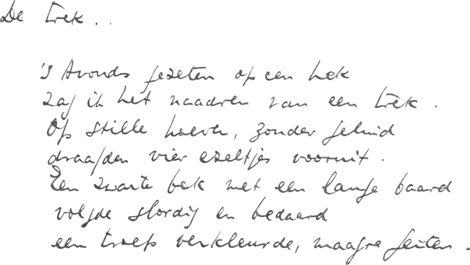 De trek..
's Avonds gezeten op een hek
zag ik het naadren van een trek.
Op stille hoeven, zonder geluid
draafden vier ezeltjes vooruit.
Een zwarte bok met een lange baard
volgde slordig en bedaard
een troep verkleurde, maagre geiten.